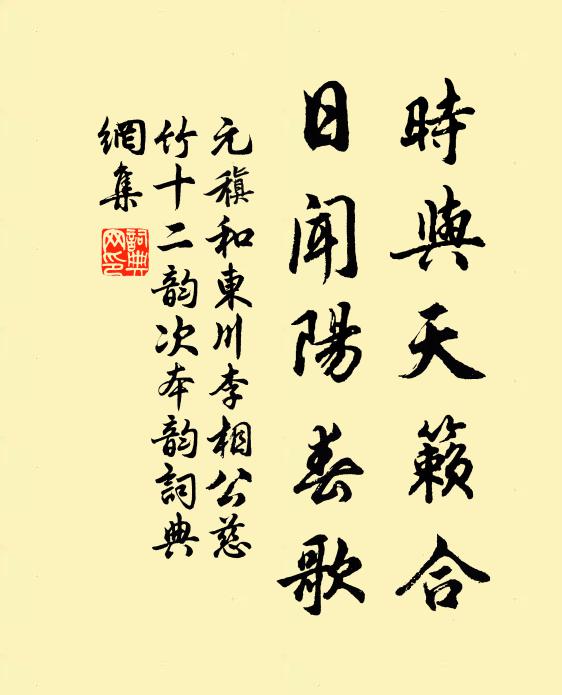 時與天籟合
日聞陽春歌
元稹和東川李相公慈
竹十二韵次本韵詞典
網集
詞典
网印